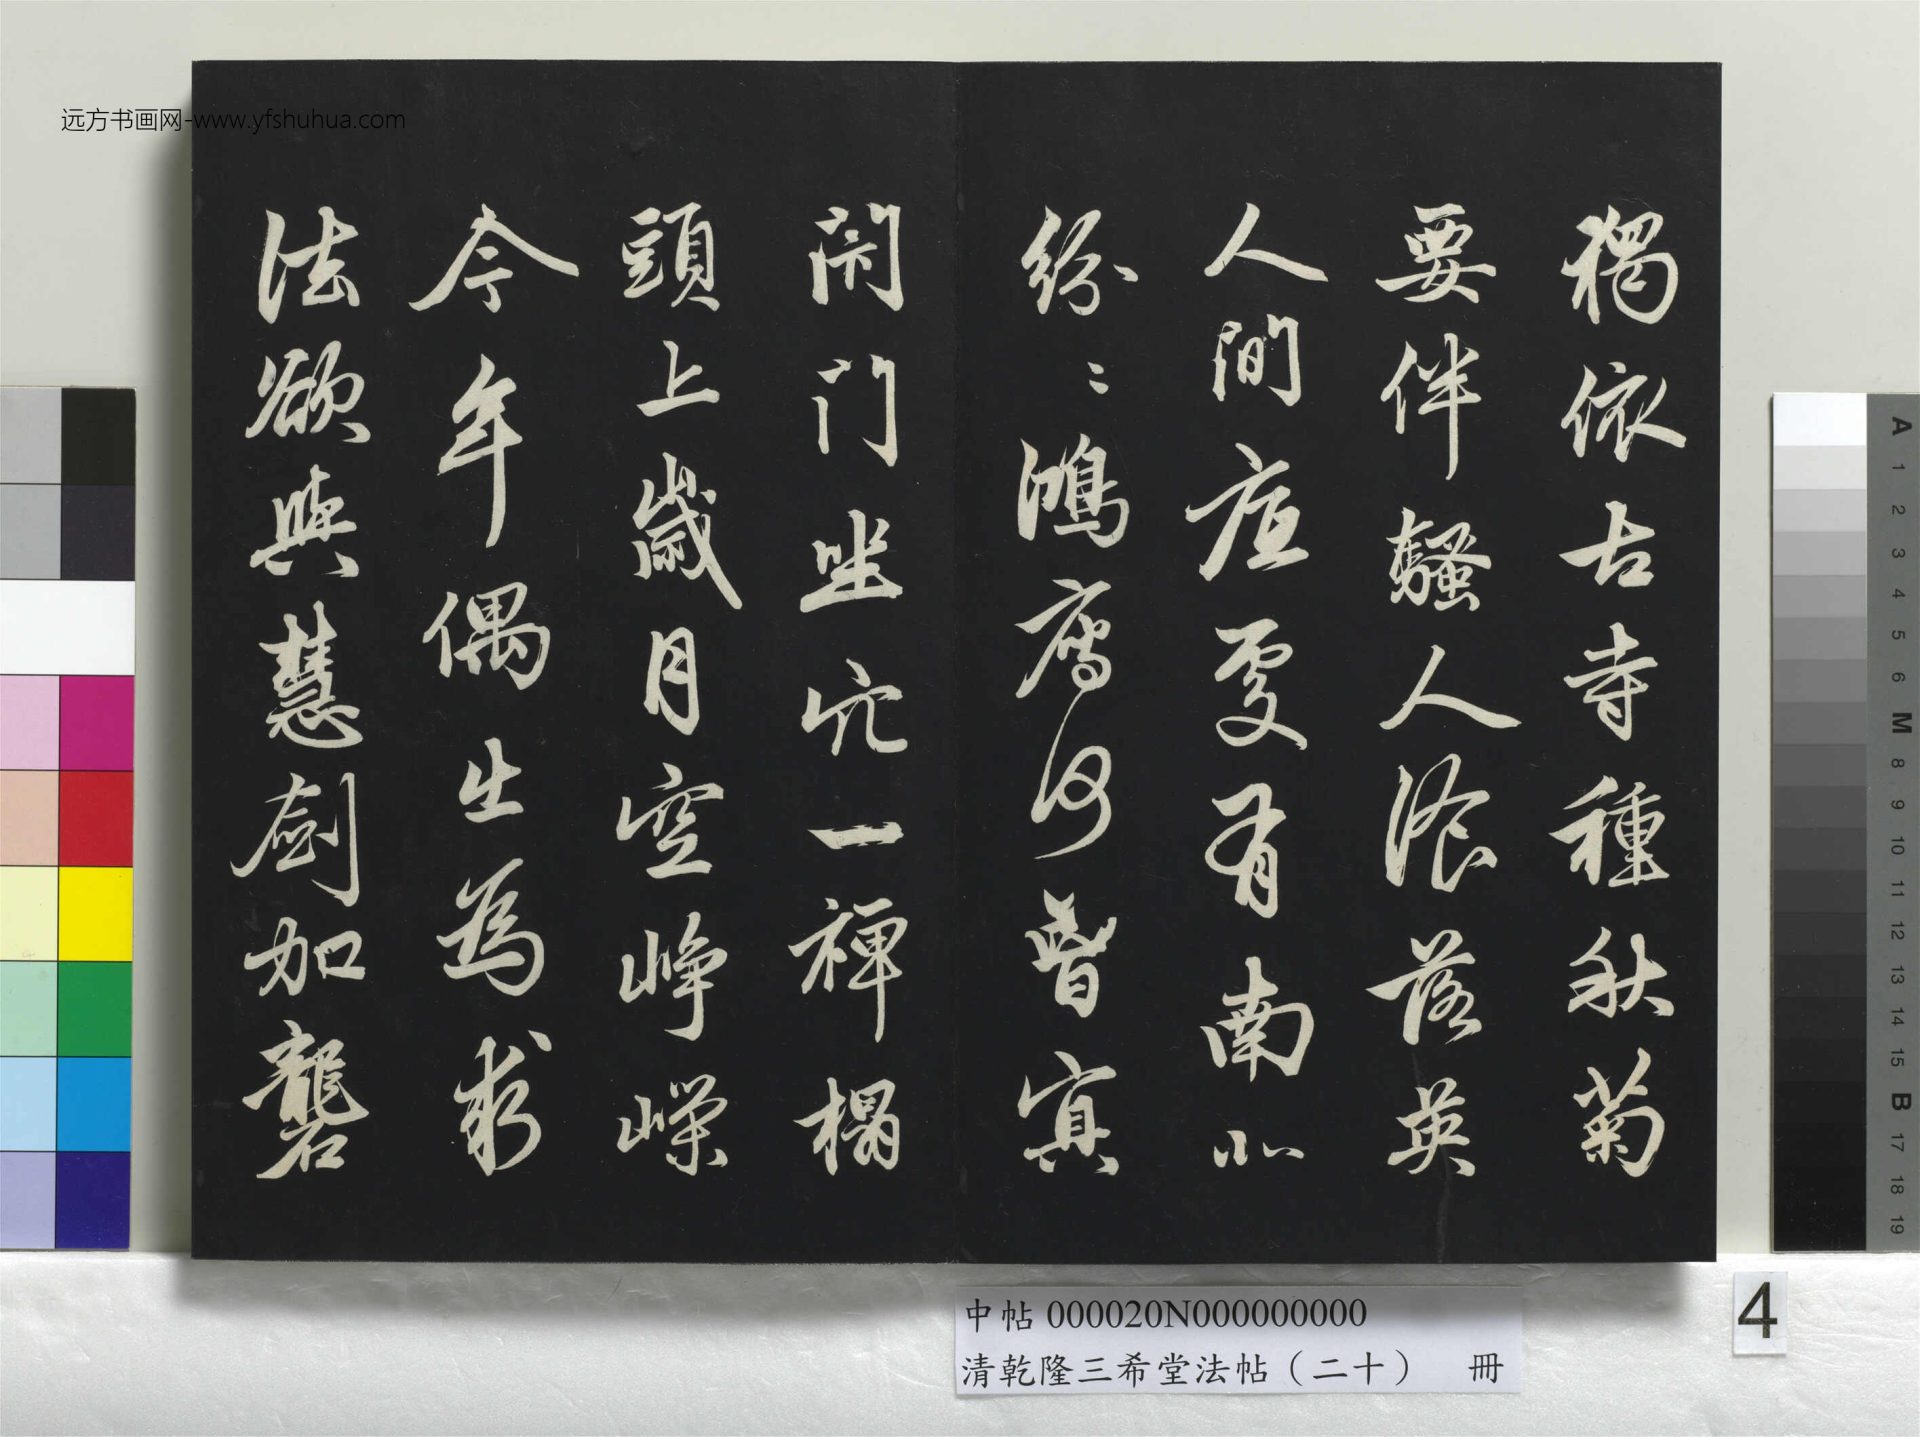 獨依古寺種秋菊
要伴騷人湌落英
人間底處有南北
紛〻鴻雁何曾冥
閉門坐穴一禪榻
頭上歲月空崢嶸
今年偶出為求
法欲與慧劍加礱
远方书画网-www.yfshuhua.com
中帖 000020N000000000
清乾隆三希堂法帖（二十） 冊
4
A
1
2
3
4
5
6
M
8
9
10
11
12
13
14
15
B
17
18
19